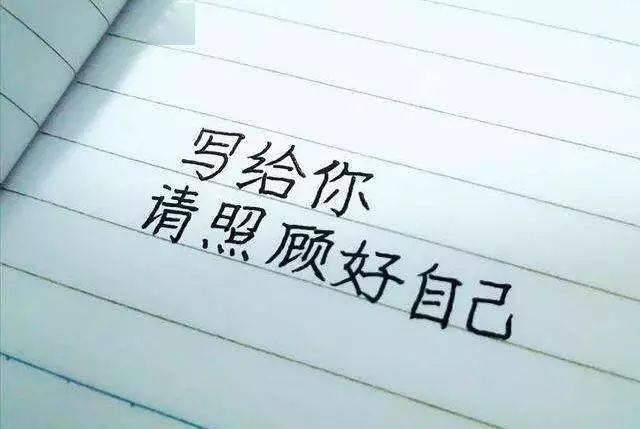 写给你
请照顾好自己